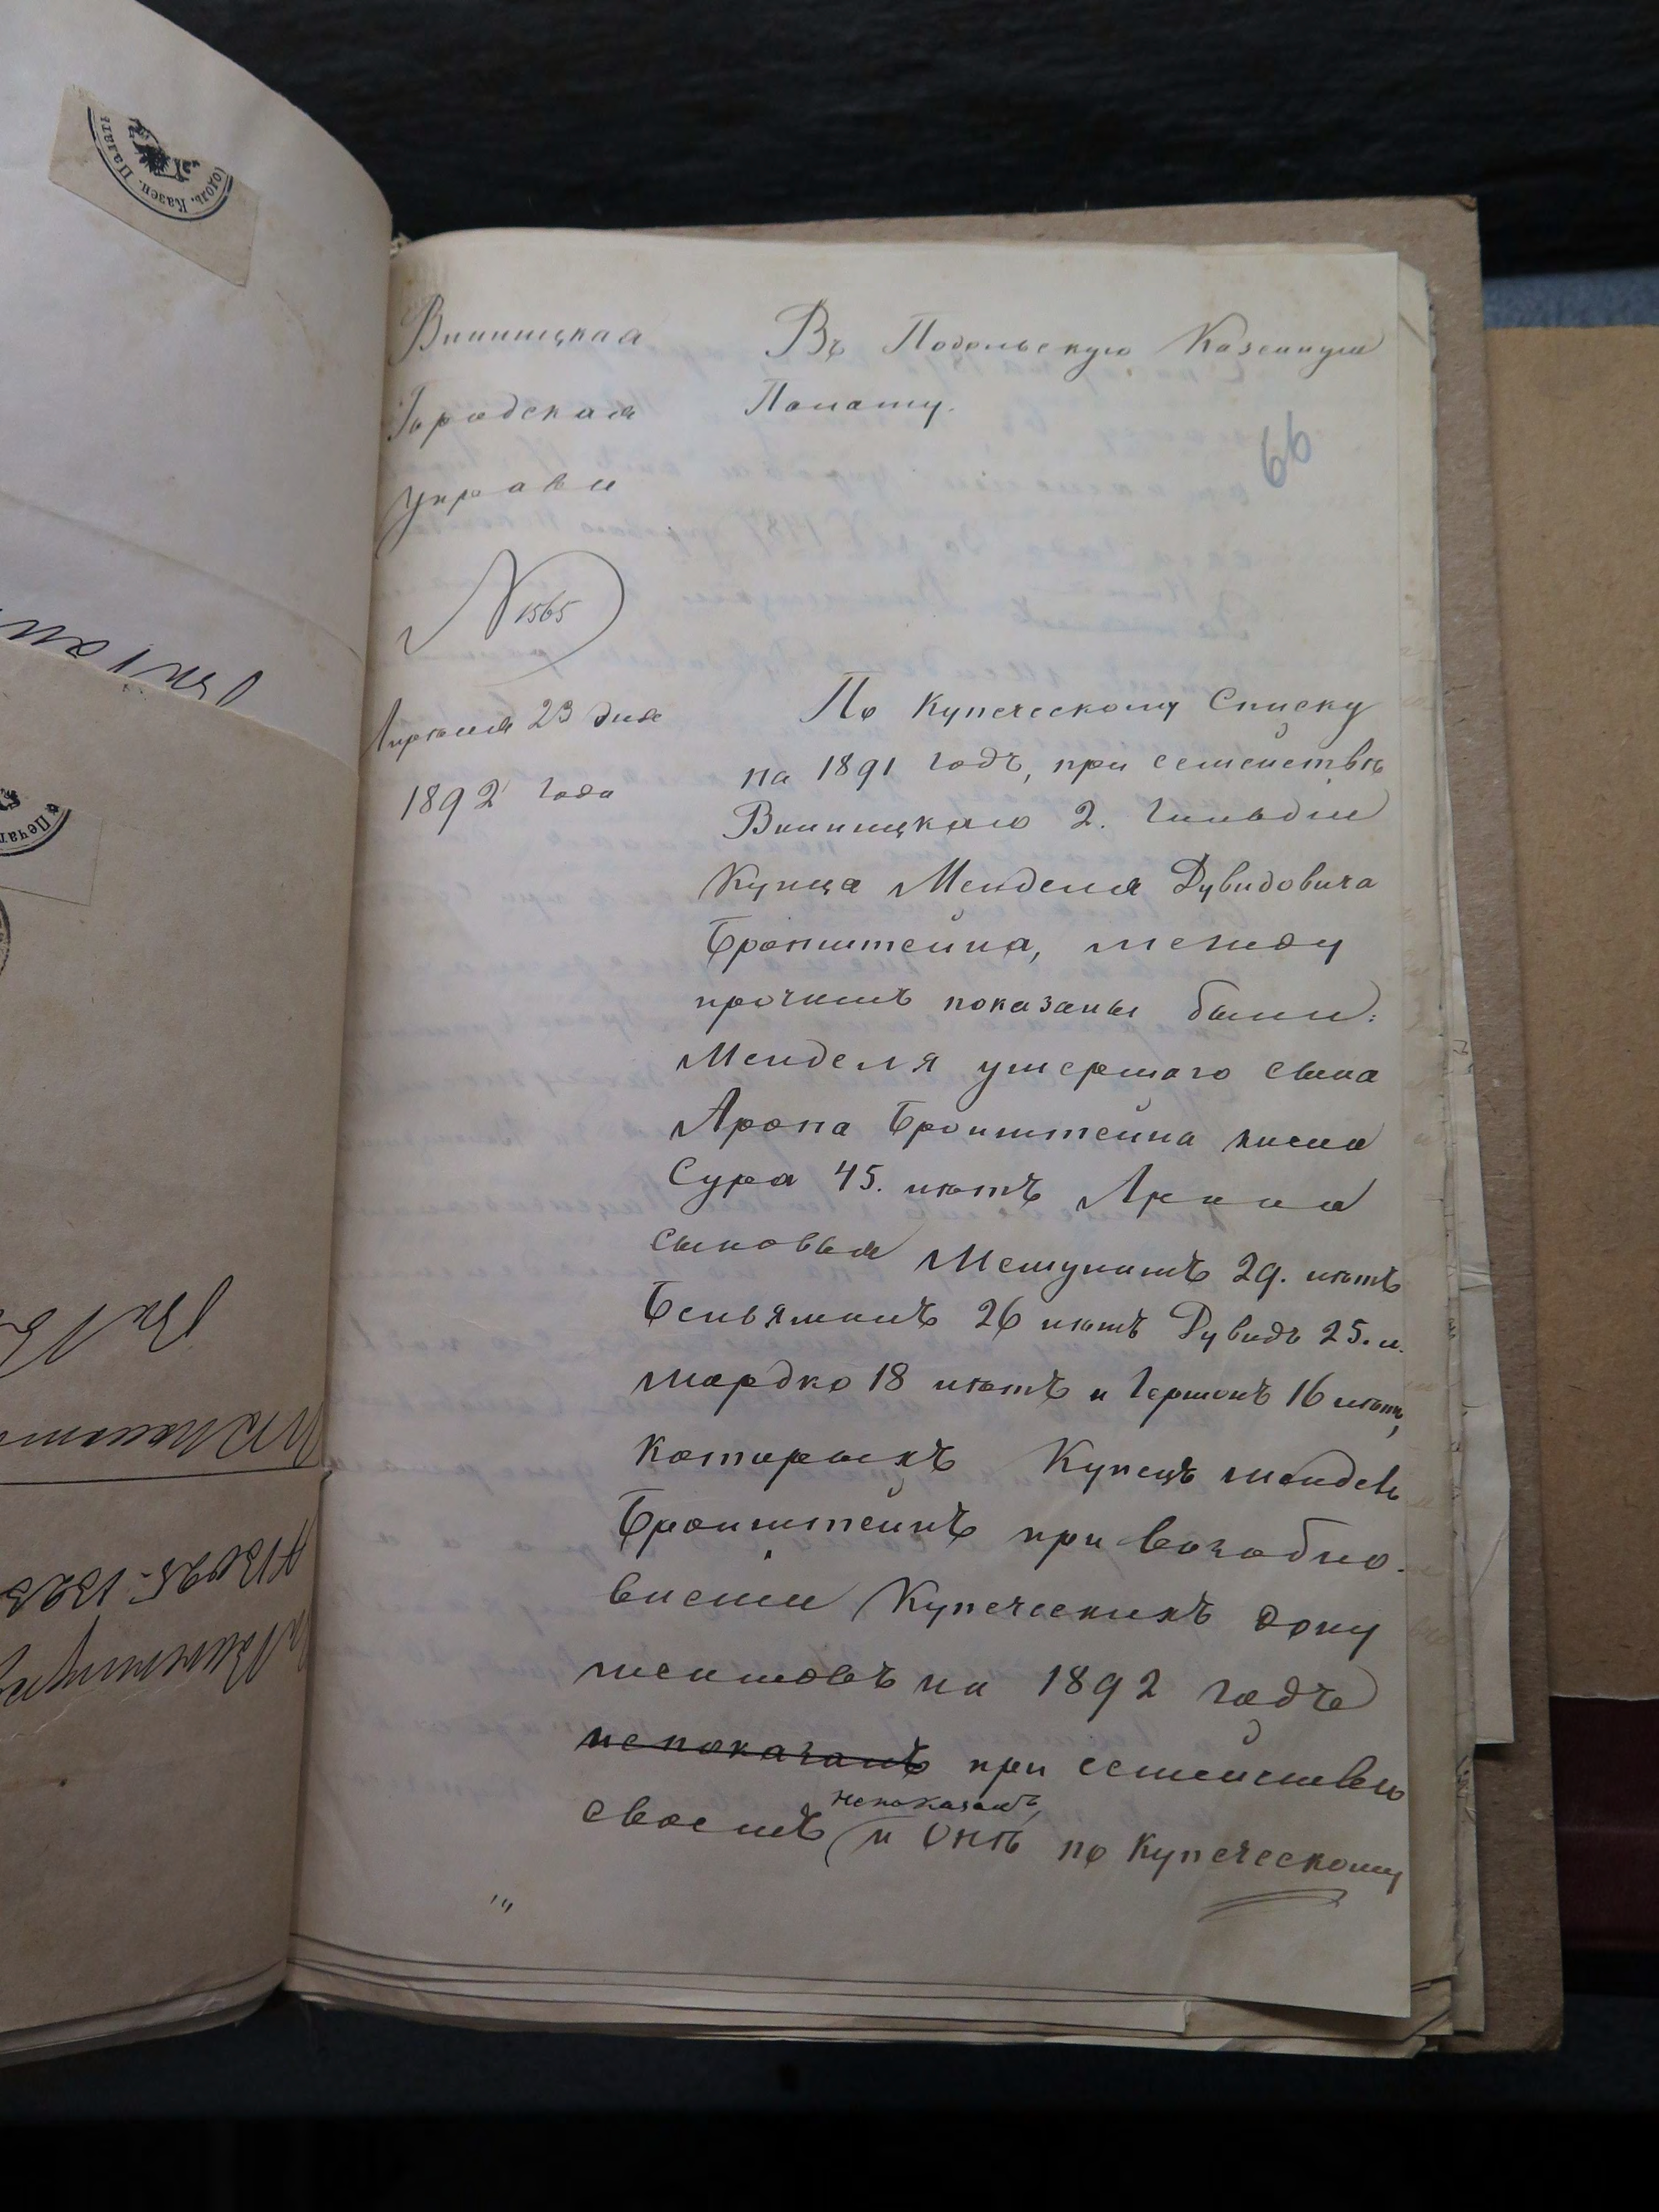 Подоль. Казен. Палаты
Винницкая
Городская
Управа
N 1565
Апрѣля 23 дня
1892 года
Въ Подольскую Казенную
Палату.
66
По купеческому списку
на 1891 годъ, при семействѣ
Винницкаго 2. гильдіи
Купца Менделя Дувидовича
Бронштейна, между
прочимъ показаны были:
Менделя умершаго сына
Арона Бронштейна жена
Сура 45. лѣтъ Арона
сыновья Мешулимъ 29. лѣтъ
Беньяминъ 26 лѣтъ Дувидъ 25. л.
Мордко 18 лѣтъ и Гершонъ 16 лѣтъ,
которыхъ Купецъ Мендель
Бронштейнъ при возобно-
вленіи Купеческихъ доку
ментовъ на 1892 годъ
непоказалъ при семействѣ
непоказалъ,
своемъ и онѣ по купеческому